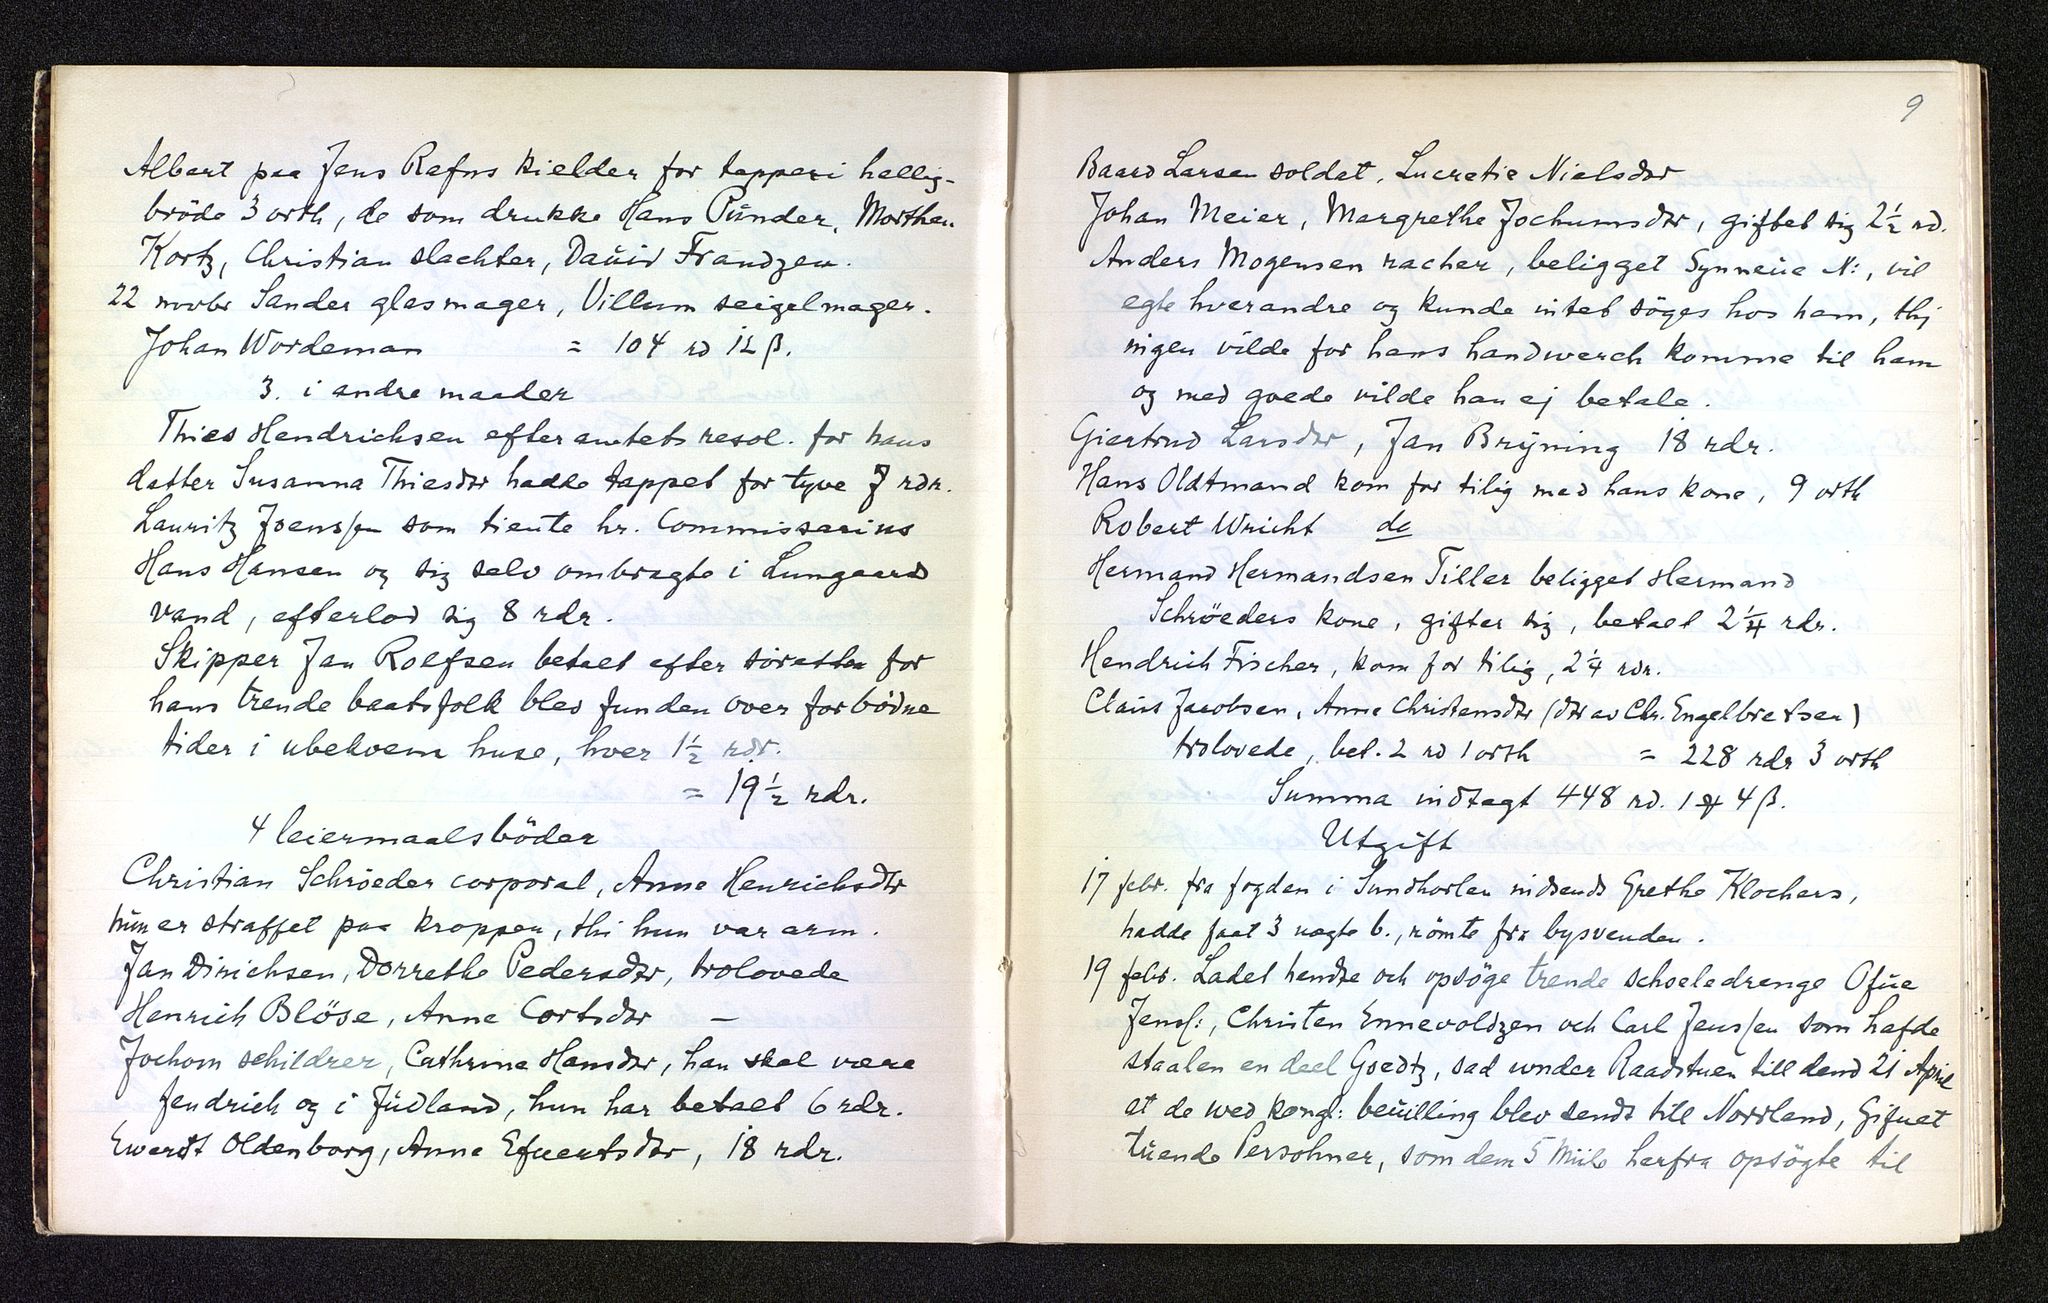 Albert paa Jens Refns kielder for tapperi hellig-
bröde 3 orth, de som drukke Hans Pünder, Morthen
Kortz, Christian slachter, Daüid Frandzen.
22 novbr Sander glasmager, Villum seigelmager.
Johan Wordeman = 104 rd 12 β.
3. i andre maader
Thies Hendrichsen efter amtets resol. for hans
datter Susanna Thiesdtr hadde tappet for tyve 7 rdr.
Lauritz Joenssen som tiente hr. Commissarius
Hans Hansen og sig selv ombragte i Lungaard
vand, efterlod sig 8 rdr.
Skipper Jan Roefsen betalt efter söretten for
hans trende baatsfolk blev funden over forbödne
tider i ubekvem huse, hver 1½ rdr.
= 19½ rdr.
4 leiermaalsböder
Christian Schröeder corporal, Anne Henrichsdtr
hün er straffet paa kroppen, thi hun var arm.
Jan Dirichsen, Dorrethe Pedersdtr, trolovede
Henrich Blöse, Anne Cortsdtr —
Jochom schildrer, Cathrine Hansdtr, han skal være
fendrich og i Jüdland, hun har betalt 6 rdr.
Ewerdt Oldenborg, Anne Efuertsdtr, 18 rdr.
9
Baard Larsen soldat, Lucretie Nielsdtr
Johan Meier, Margrethe Jochumsdtr, giftet sig 2½ rd.
Anders Mogensen racher, beligget Synneüe N:, vil
egte hverandre og kunde intet söges hos ham, thj
ingen vilde for hans handwerch komme til ham
og med goede vilde han ej betale.
Giertrud Larsdtr, Jan Brÿning 18 rdr.
Hans Oldtmand kom for tilig med hans kone, 9 orth
Robert Wricht do
Hermand Hermandsen Tiller beligget Hermand
Schröeders kone, gifter sig, betalt 2¼ rdr.
Hendrich Fischer, kom for tilig, 2¼ rdr.
Claüs Jacobsen, Anne Christensdtr (dtr av Chr. Engelbretsen)
trolovede, bet. 2 rd 1 orth = 228 rdr 3 orth
Summa indtagt 448 rd. 1 ꝶ 4 β.
Utgift
17 febr. fra fogden i Sundhorlen indsendt Grethe Klochers,
hadde faat 3 uegte b., römte fra bysvenden.
19 febr. Ladet hendte och opsöge trende schoeledrenge Ofüe
Jens/:, Christen Ennevoldzen och Carl Jenssen som hafde
staalen en deel Goedtz, sad under Raadstuen till dend 21 April
at de wed kongl: beüilling blev sendt till Norrland, Gifuet
tüende Persohner, som dem 5 Miile herfra opsögte til